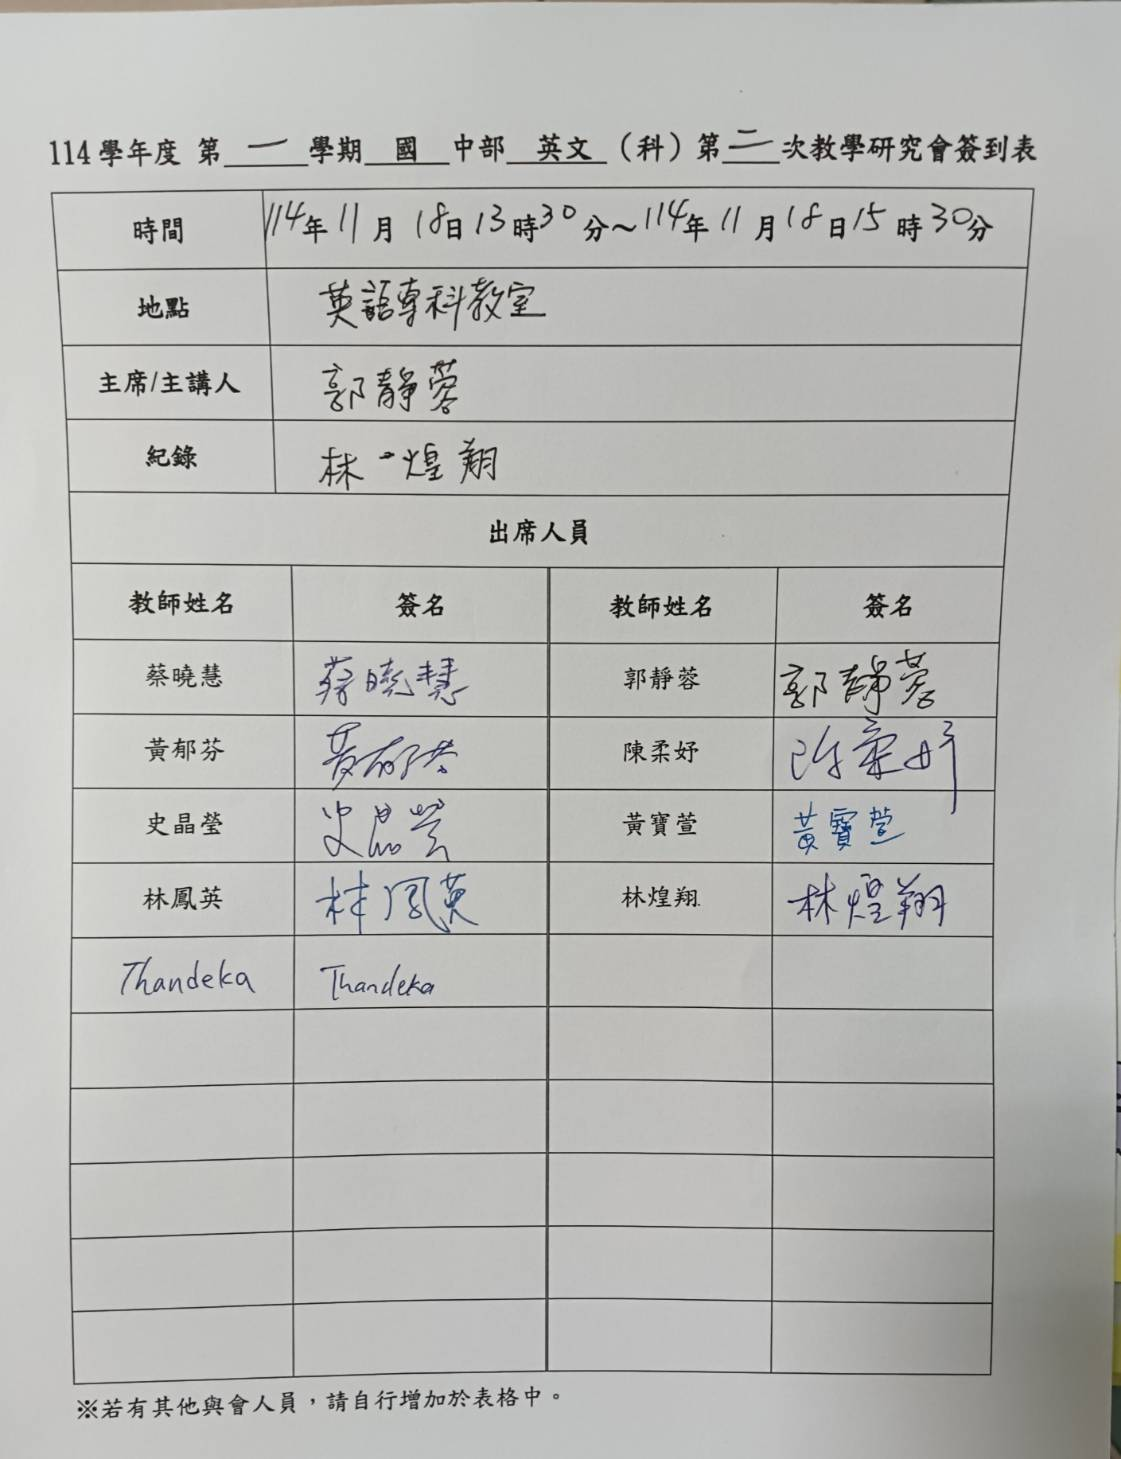 114學年度 第 一 學期 國 中部 英文 （科）第 二 次教學研究會簽到表
時間 114年11月18日13時30分～114年11月18日15時30分
地點 英語專科教室
主席/主講人 郭靜蓉
紀錄 林煌翔
出席人員
教師姓名 簽名 教師姓名 簽名
蔡曉慧 蔡曉慧 郭靜蓉 郭靜蓉
黃郁芬 黃郁芬 陳柔妤 陳柔妤
史晶瑩 史晶瑩 黃寶萱 黃寶萱
林鳳英 林鳳英 林煌翔 林煌翔
Thandeka Thandeka
※若有其他與會人員，請自行增加於表格中。